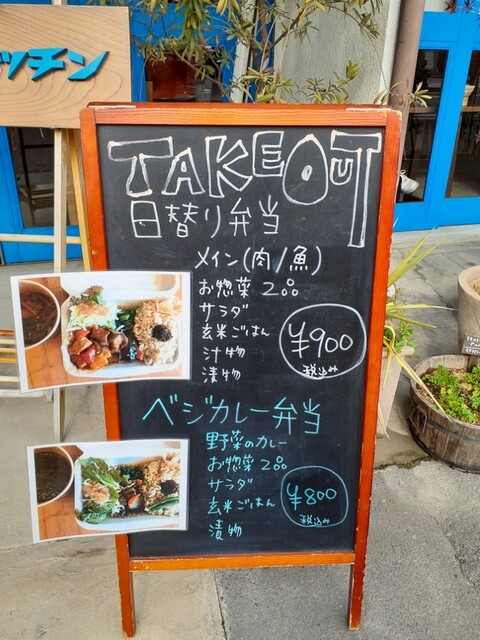 ッチン
TAKEOUT
日替り弁当
メイン(肉/魚)
お惣菜 2品
サラダ
玄米ごはん
汁物
漬物
¥900
税込み
ベジカレー弁当
野菜のカレー
お惣菜 2品
サラダ
玄米ごはん
漬物
¥800
税込み